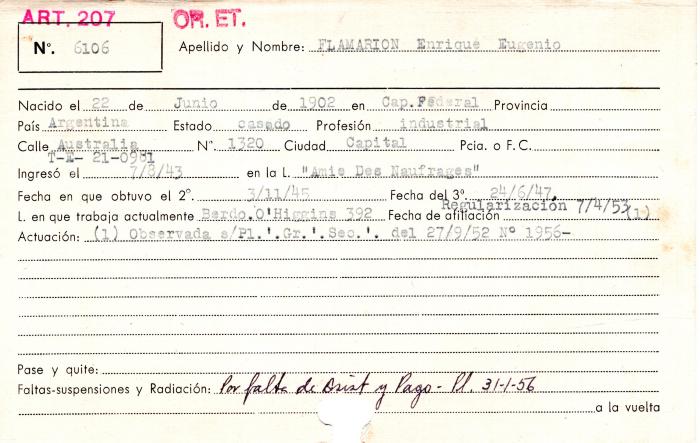 ART. 207
OR. ET.
Nº. 6106
Apellido y Nombre: FLAMARION Enrique Eugenio
Nacido el 22 de Junio de 1902 en Cap.Federal Provincia
País Argentina Estado casado Profesión industrial
Calle Australia Nº. 1320 Ciudad Capital Pcia. o F.C.
T-E- 21-0981
Ingresó el 7/8/43 en la L. "Amie Des Naufrages"
Fecha en que obtuvo el 2º. 3/11/45 Fecha del 3º. 24/6/47.
Regularización 7/4/53
L. en que trabaja actualmente Berdo.O'Higgins 392 Fecha de afiliación (1)
Actuación: (1) Observada s/Pl.'.Gr.'.Sec.'. del 27/9/52 Nº 1956-
Pase y quite:
Faltas-suspensiones y Radiación: Por falta de Asist y Pago - Pl. 31-1-56
a la vuelta